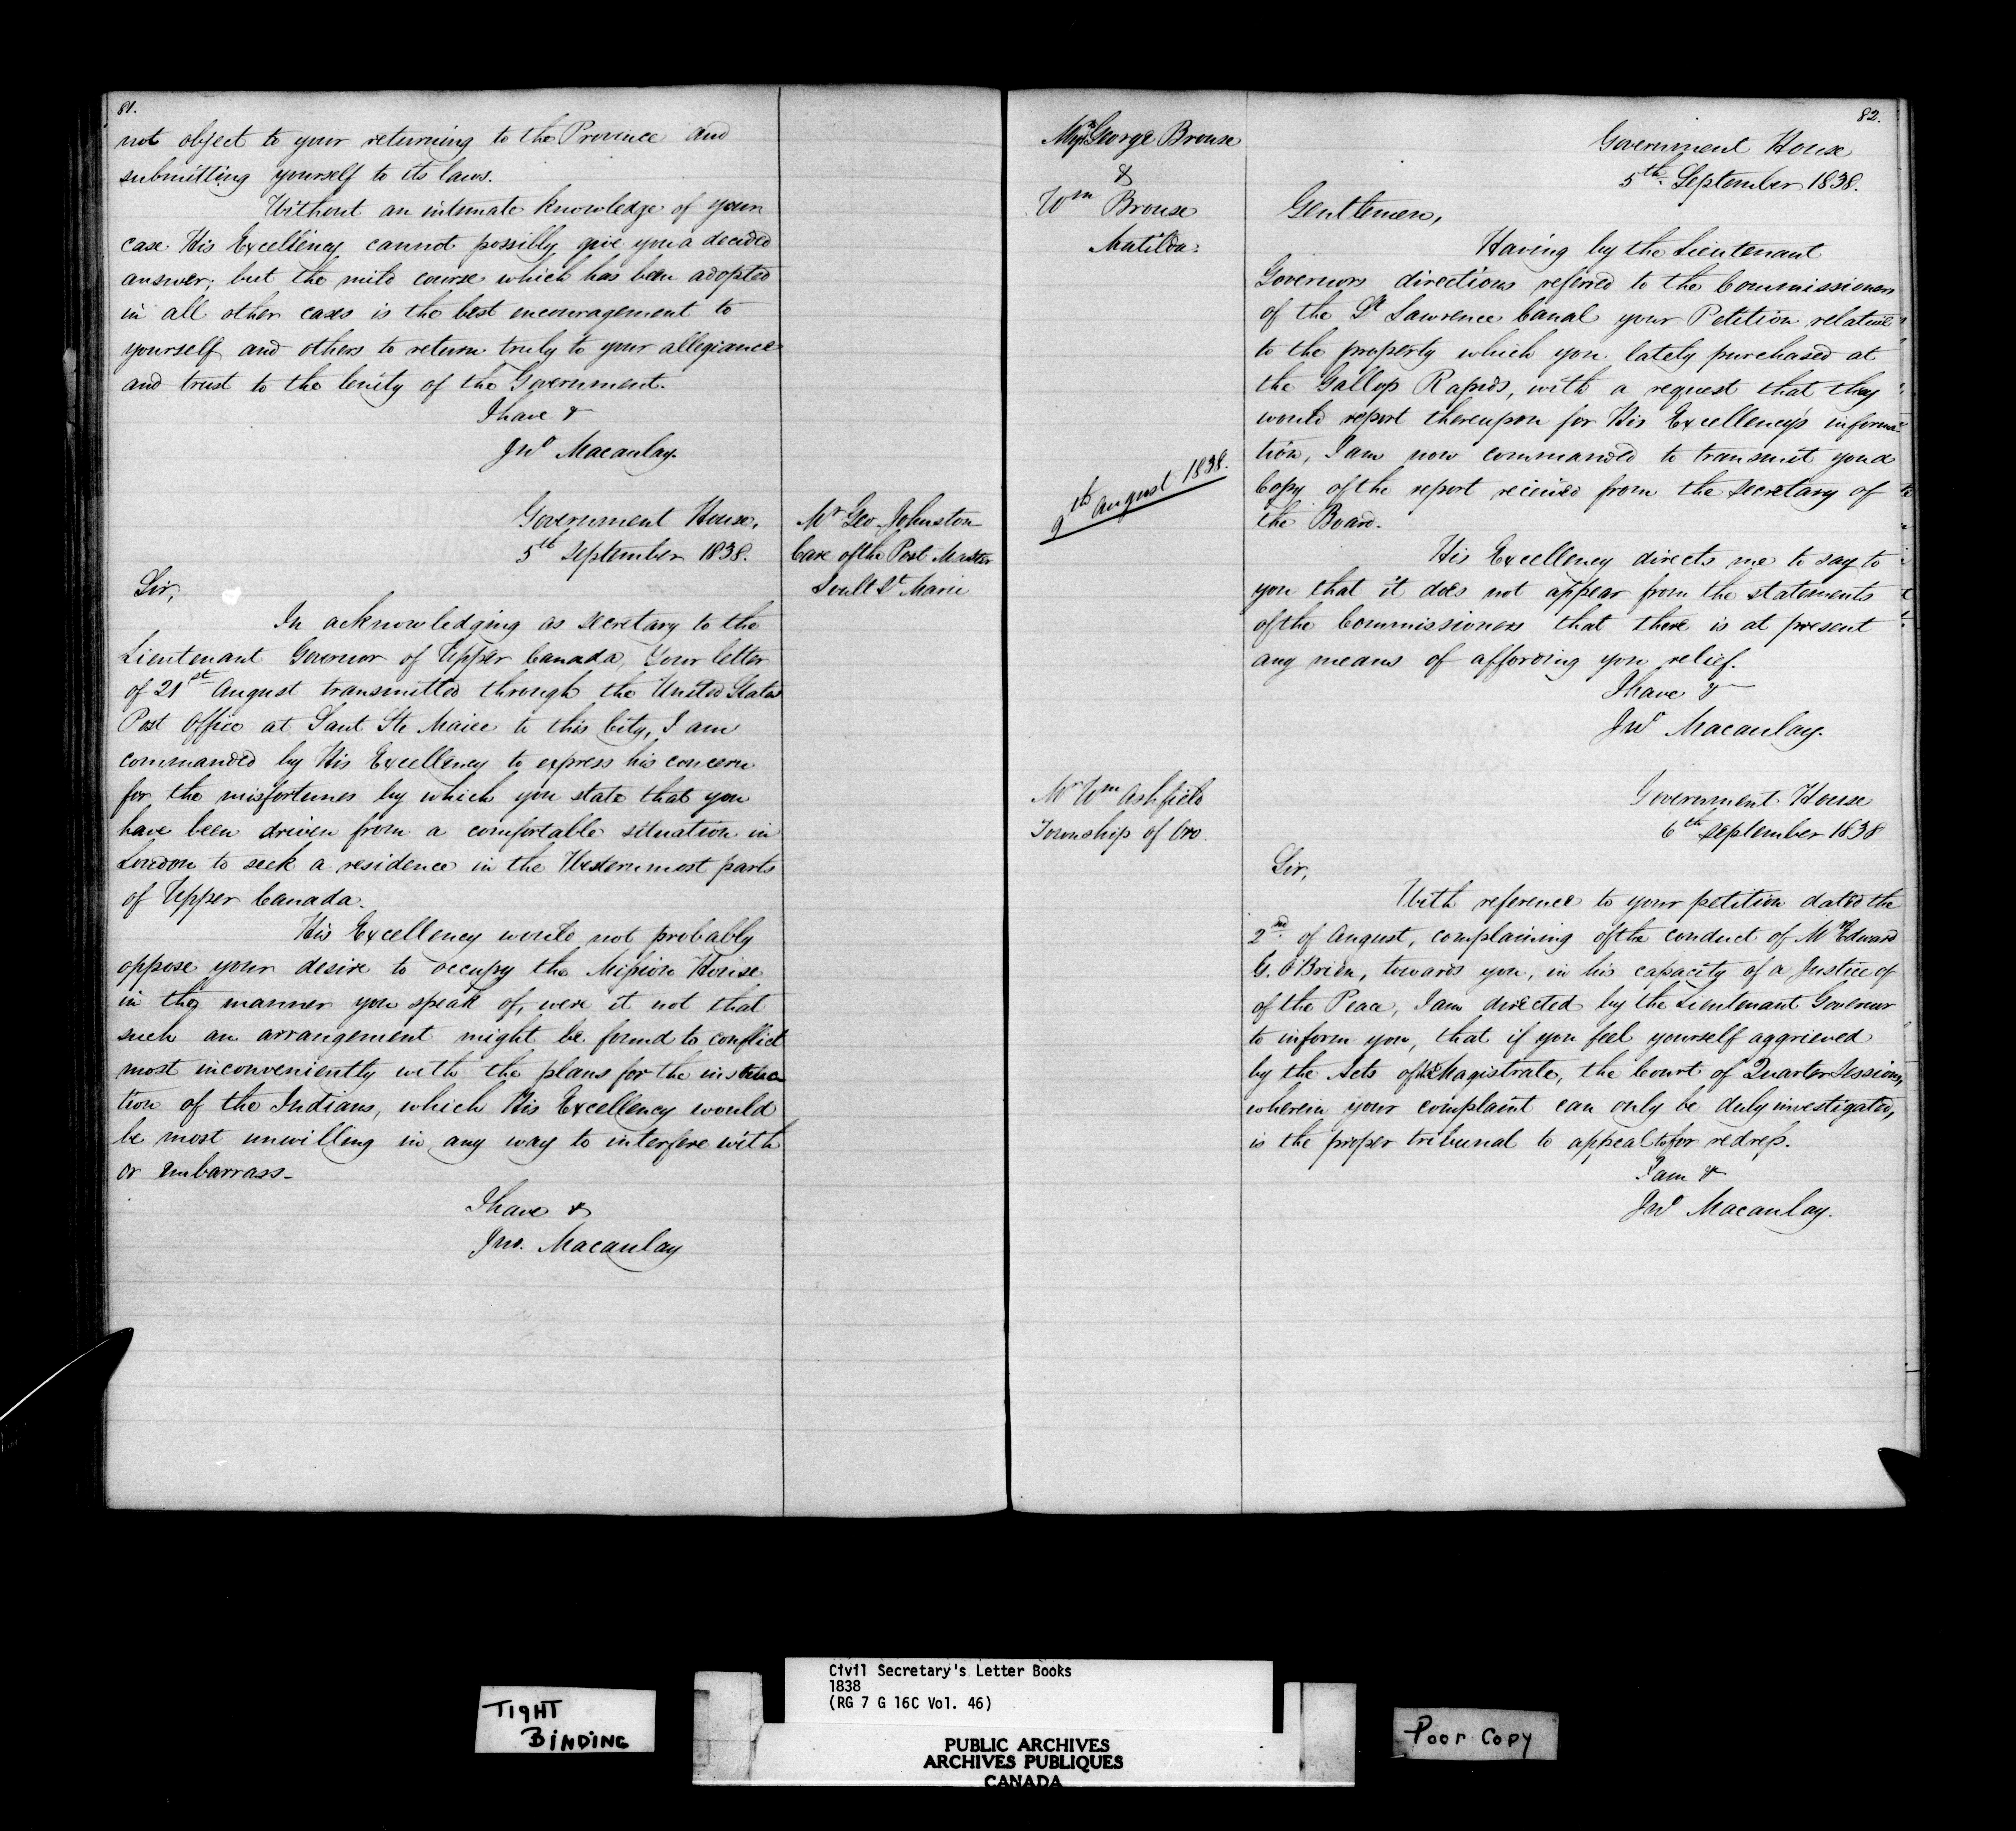 81.
not object to your returning to the Province and
submitting yourself to its laws.
Without an intimate knowledge of your
case His Excellency cannot possibly give you a decided
answer; but the mild course which has been adopted
in all other cases is the best encouragement to
yourself and others to return truly to your allegiance
and trust to the lenity of the Government.
I have &
Jno Macaulay.
Government House,
5th September 1838.
Mr Geo Johnston
Care of the Post Master
Sault St Marie
Sir,
In acknowledging as Secretary to the
Lieutenant Governor of Upper Canada, Your letter
of 21st August transmitted through the United States
Post Office at Saut Ste Maire to this City, I am
commanded by His Excellency to express his concern
for the misfortunes by which you state that you
have been driven from a comfortable situation in
London to seek a residence in the Westernmost parts
of Upper Canada.
His Excellency would not probably
oppose your desire to occupy the Mission House
in the manner you speak of, were it not that
such an arrangement might be found to conflict
most inconveniently with the plans for the instruc-
tion of the Indians, which His Excellency would
be most unwilling in any way to interfere with
or embarrass-
I have &
Jno. Macaulay
82.
George Brouse
&
Wm Brouse
Matilda.
Government House
5th September 1838.
Gentlemen,
Having by the Lieutenant
Governors directions referred to the Commissioners
of the St Lawrence Canal your Petition relative
to the property which you lately purchased at
the Gallop Rapids, with a request that they
would report thereupon for His Excellency's informa-
tion, I am now commanded to transmit you a
9th August 1838.
Copy of the report received from the Secretary of
the Board.
His Excellency directs me to say to
you that it does not appear from the statements
of the Commissioners that there is at present
any means of affording you relief.
I have &
Jno Macaulay.
Mr Wm Ashfield
Township of Oro.
Government House
6th September 1838
Sir,
With reference to your petition dated the
2nd of August, complaining of the conduct of Mr Edward
G. O'Brien, towards you, in his capacity of a Justice of
of the Peace, I am directed by the Lieutenant Governor
to inform you, that if you feel yourself aggrieved
by the Acts of the Magistrate, the Court of Quarter Sessions,
wherein your complaint can only be duly investigated,
is the proper tribunal to appeal to for redress.
I am &
Jno Macaulay.
TIGHT
BINDING
Civil Secretary's Letter Books
1838
(RG 7 G 16C Vol. 46)
PUBLIC ARCHIVES
ARCHIVES PUBLIQUES
CANADA
Poor Copy